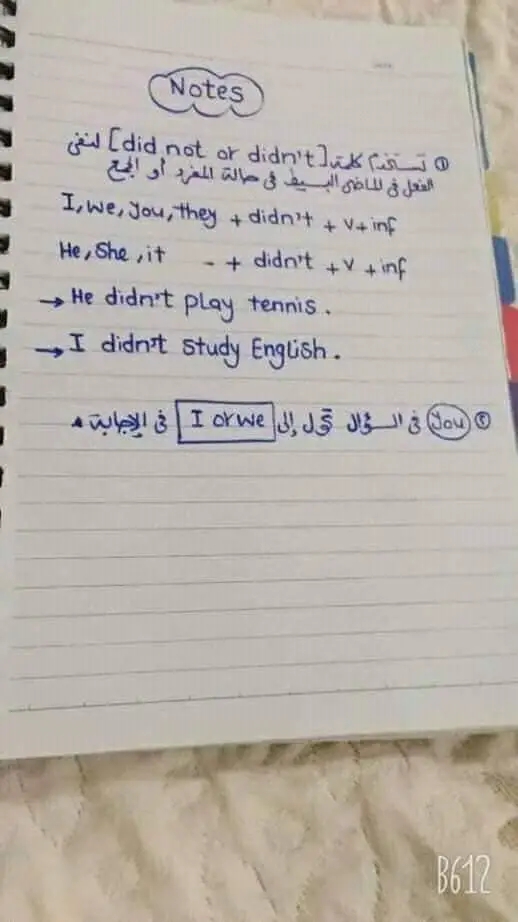 Notes
① تستخدم كلمة [did not or didn't] لنفى
الفعل فى الماضى البسيط فى حالة المفرد أو الجمع
I, we, you, they + didn't + v + inf
He, She, it - + didn't + v + inf
→ He didn't play tennis.
→ I didn't study English.
② you فى السؤال تحول إلى I or we فى الإجابة
B612